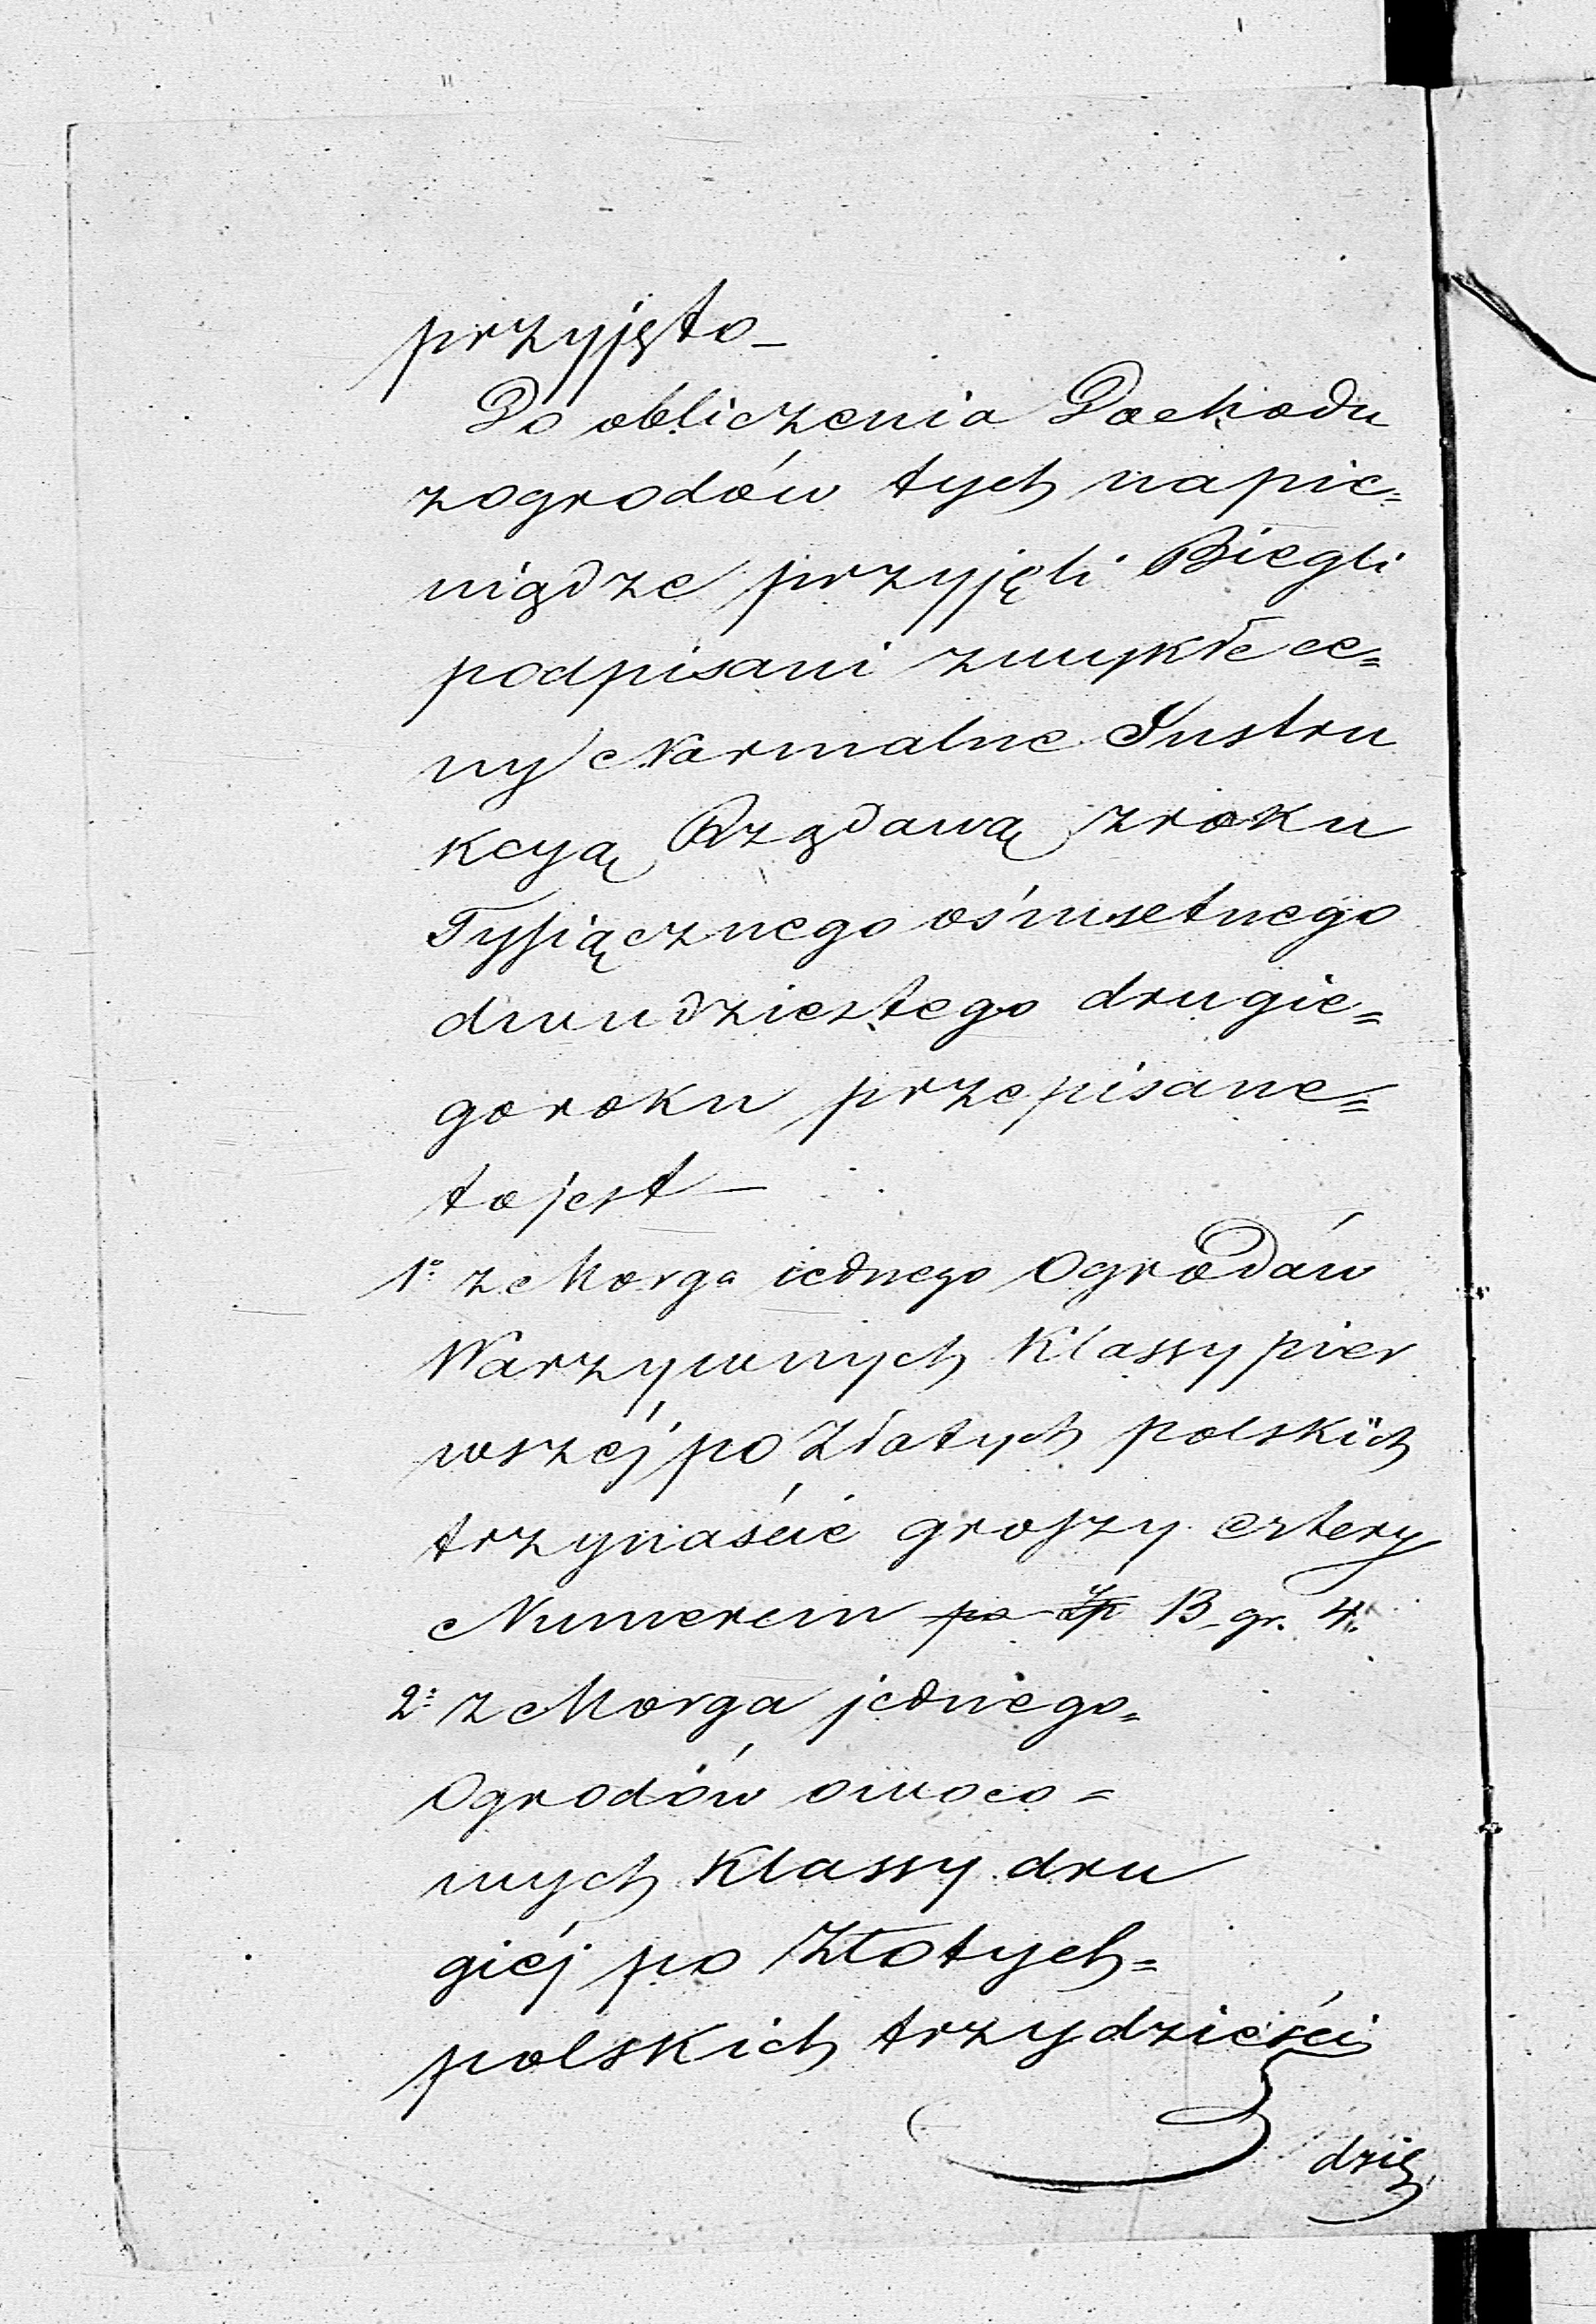 przyjęto_
Do obliczenia Dochodu
zogrodów tych napie=
niądze przyjęli Biegli
podpisani zwykłe ce=
ny Normalne Instru
kcyą Rządową zroku
Tysiącznego ośmsetnego
dwudziestego drugie=
goroku przepisane=
to jest—
1o zeMorga iednego Ogrodów
Warzywnych Klassy pier
wszéj po Złotych polskich
trzynaście groszy cztery
Numerem po Zp 13_ gr. 4.
2o zeMorga jednego=
Ogrodów owoco=
wych Klassy dru
giéj po Złotych=
polskich trzydzieści
dzie